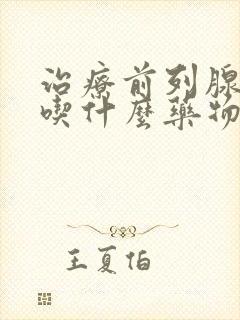 治療前列腺
喫什麼藥物
王夏伯